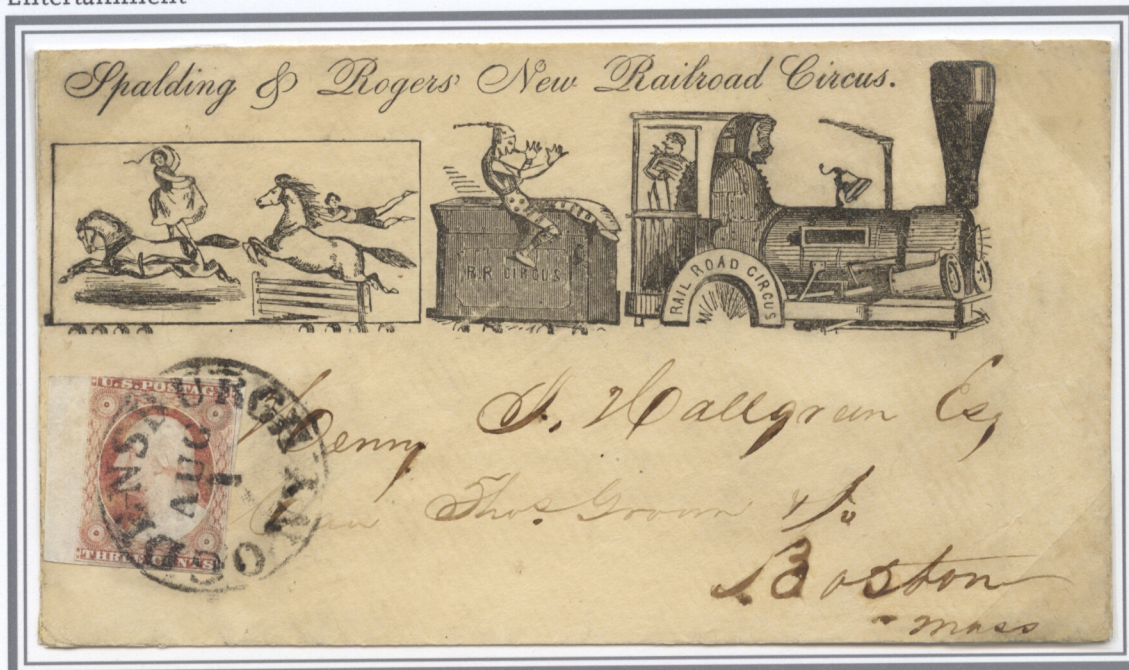 Entertainment
Spalding & Rogers' New Railroad Circus.
R.R CIRCUS
RAIL ROAD CIRCUS
U.S. POSTAGE
THREE CENTS
OGDENSBURGH N.Y.
AUG
1
Henry J. Hallgreen Esq
Thos. Groom & Co
Boston
Mass